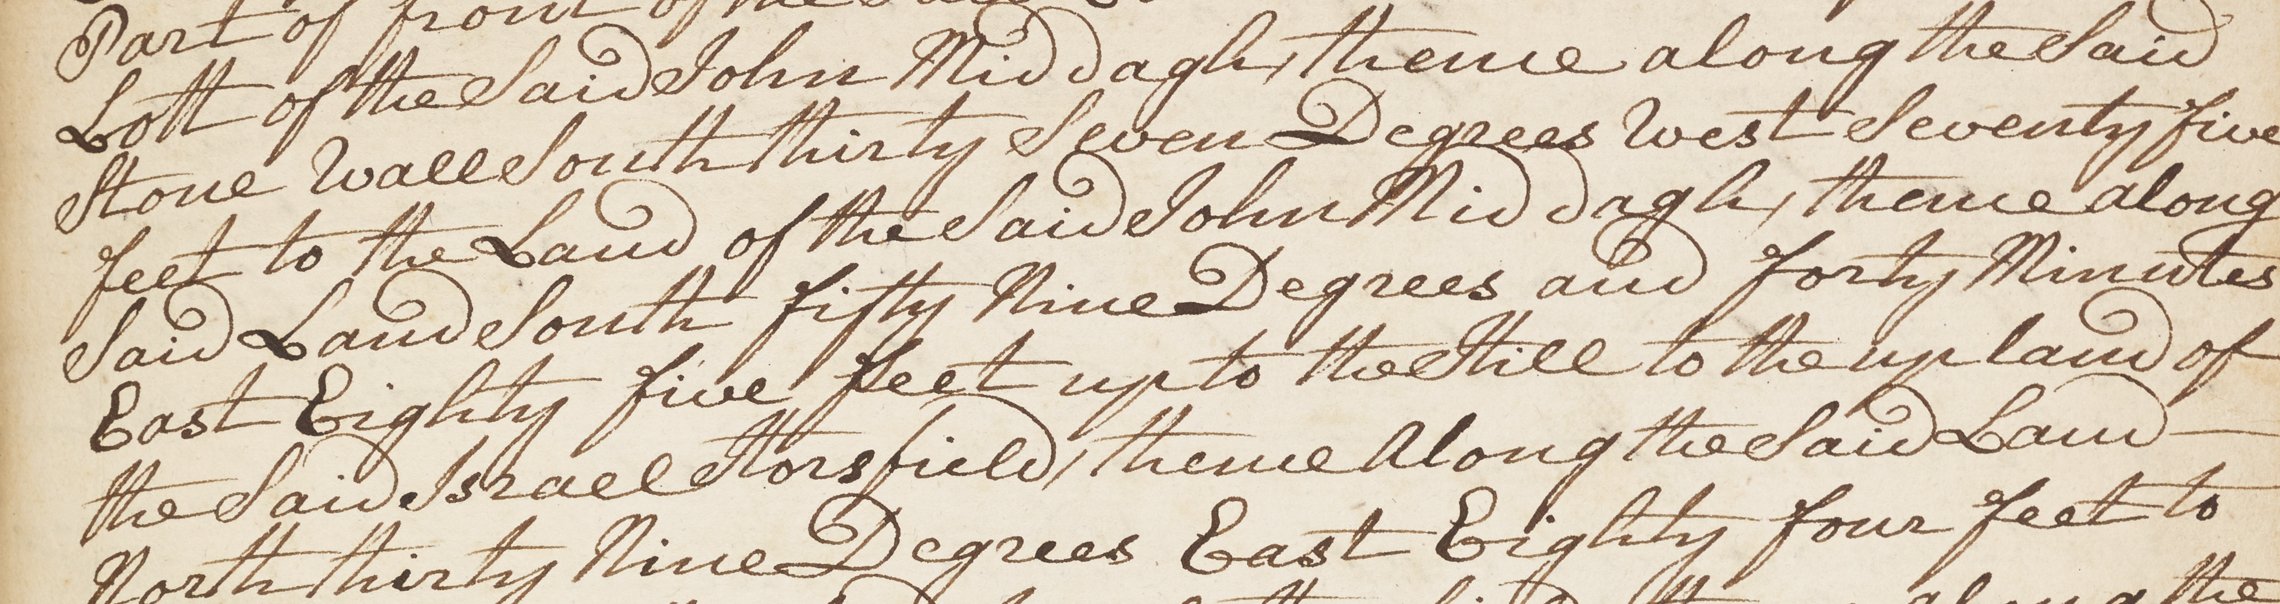 Part of front of the Said
Lott of the Said John Middagh, thence along the Said
Stone Wall South thirty Seven Degrees West Seventy five
feet to the Land of the Said John Middagh, thence along
Said Land South fifty Nine Degrees and forty Minutes
East Eighty five feet up to the Hill to the up land of
the Said Israel Horsfield, thence Along the Said Land —
North thirty Nine Degrees East Eighty four feet to
along the